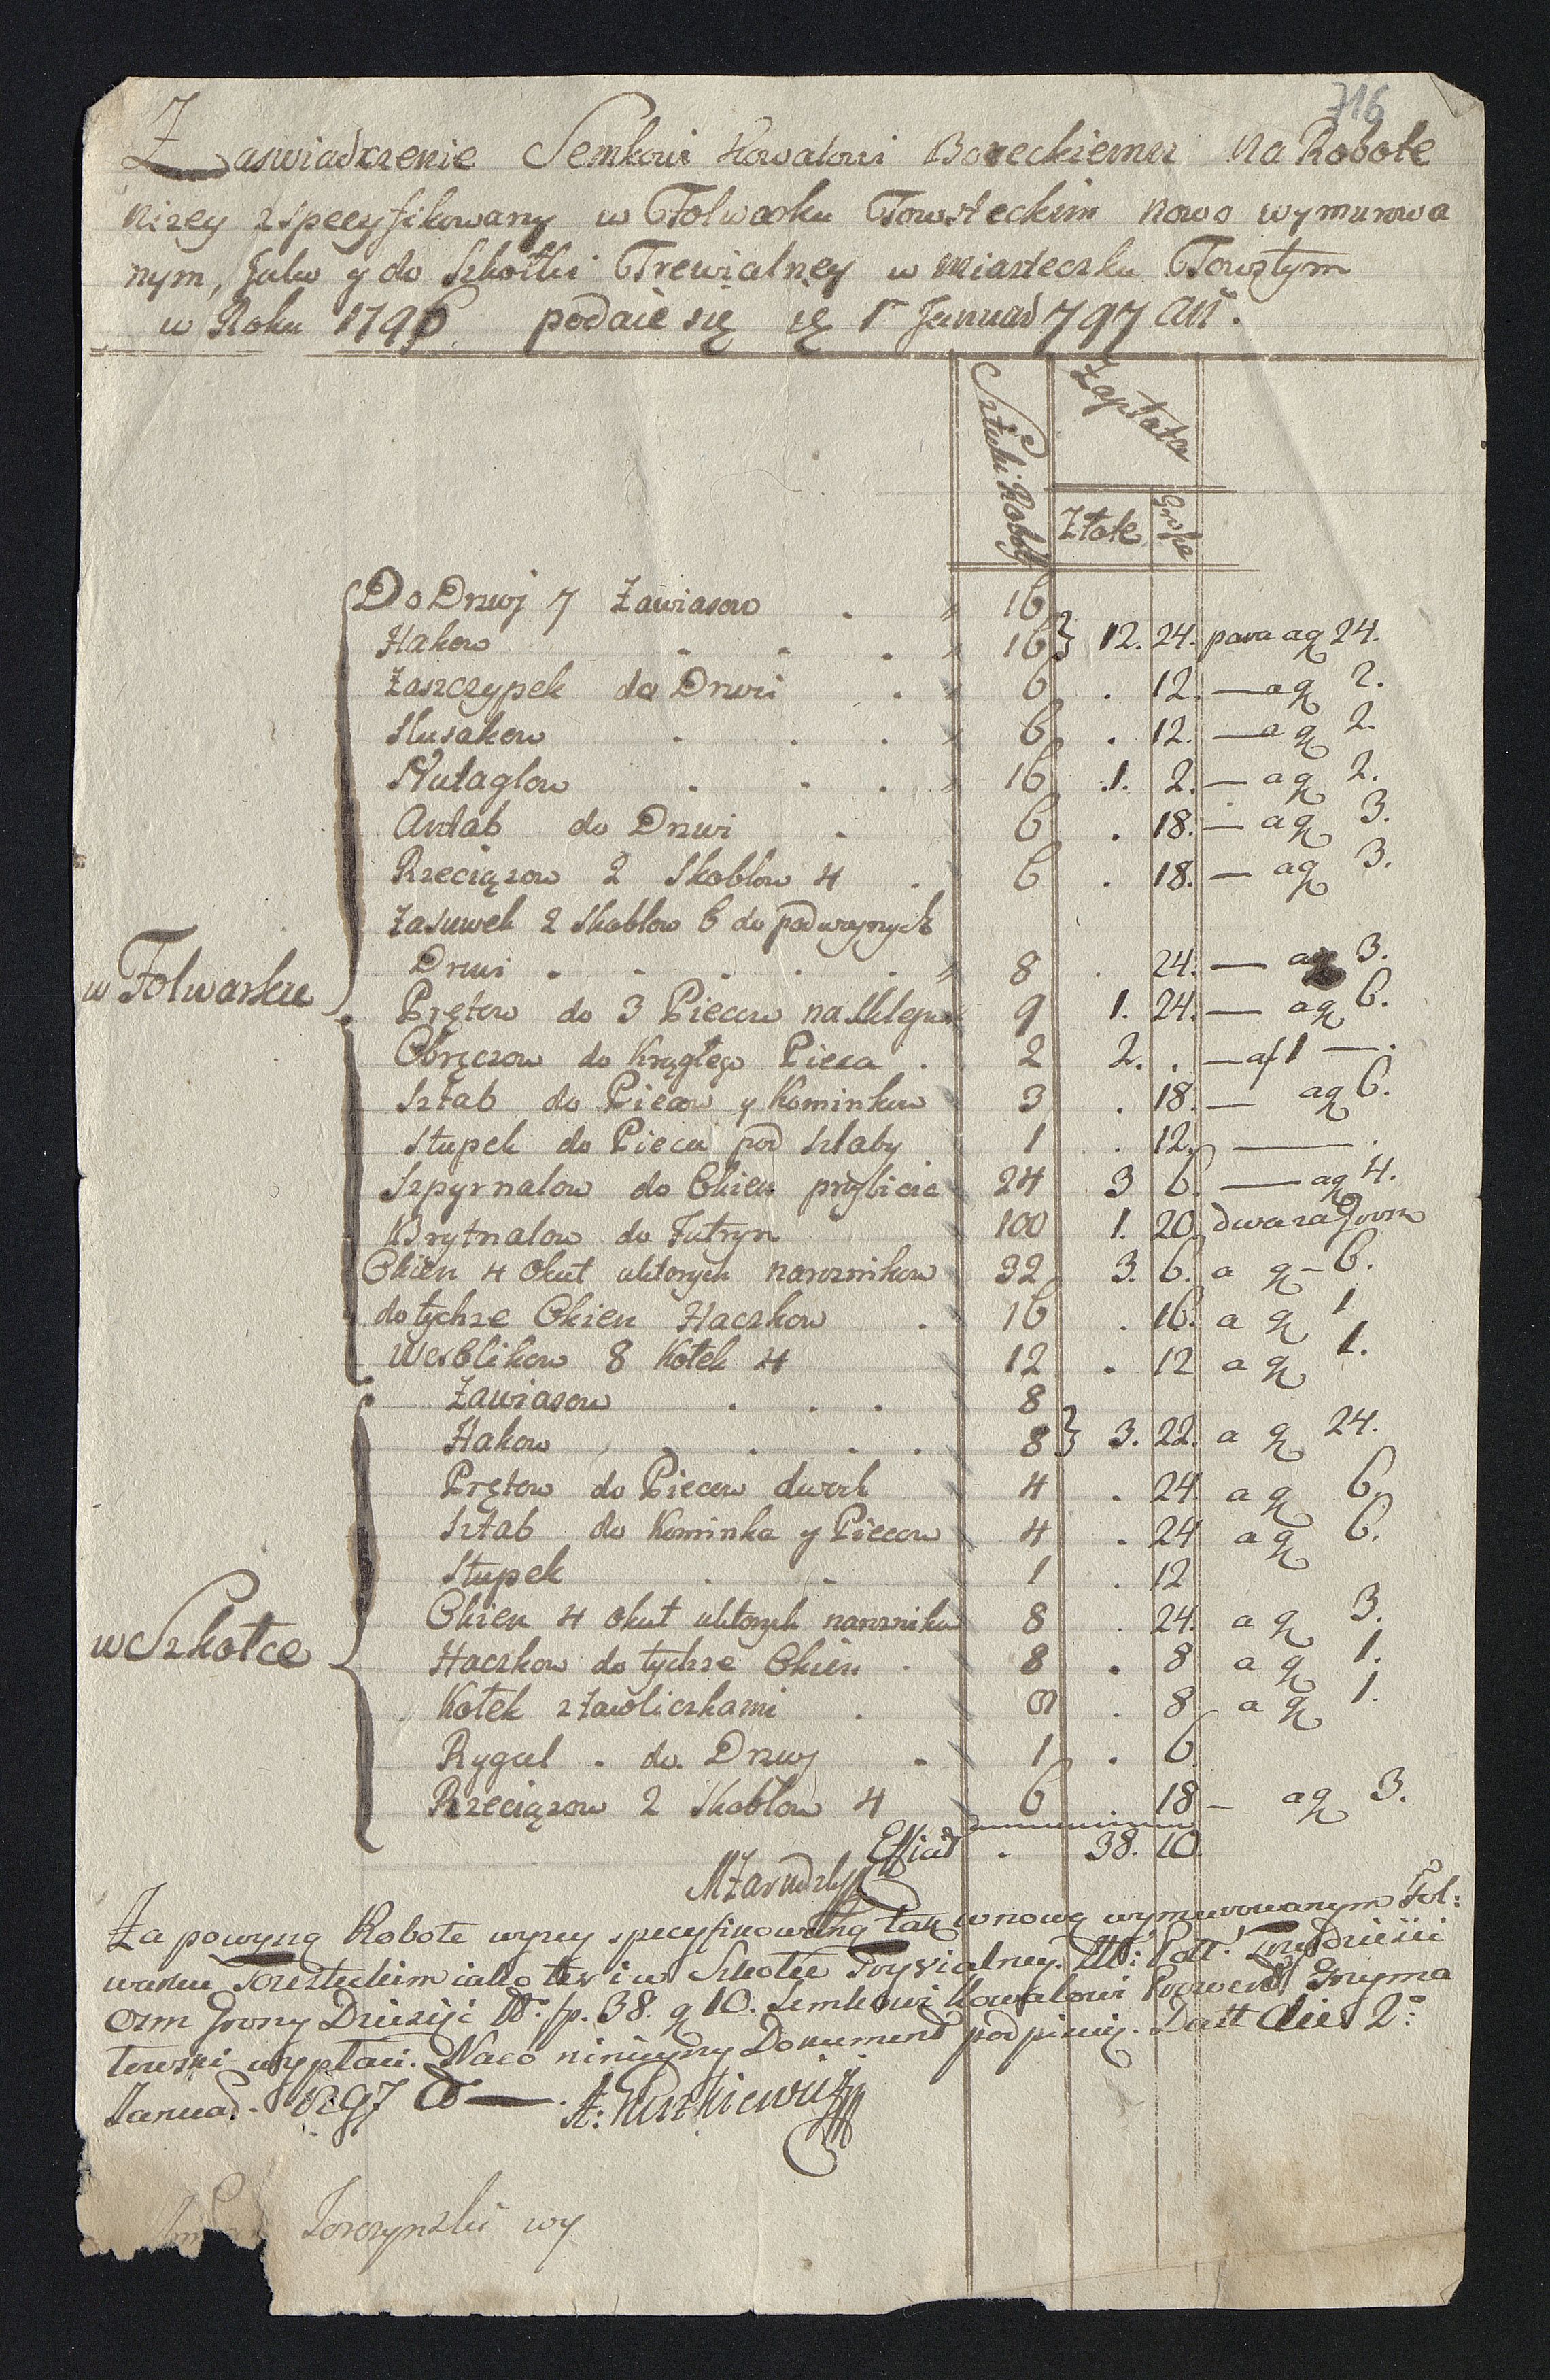 716
Zaswiadczenie Semkowi Kowalowi Boreckiemu na Robote
nizey zspecyfikowany w Folwarku Towsteckim nowo wymurowa
nym, Jako y do Szkołki Trewialney w miasteczku Towstym
w Roku 1796. podaie się 1ma Januar 797 an.
Sztuki Roboty Zapłata
Złote Grosze
Do Drzwj 7 Zawiasow . " 16
Hakow . . . " 16 } 12. 24. para a gr 24.
Zaszczypek do Drzwi . " 6 . 12. — a gr 2.
Klusakow . . . " 6 . 12. — a gr 2.
Nutaglow . . . " 16 .1. 2. — a gr 2.
Andab do Drzwi . 6 . 18. — a gr 3.
Rzeciązow 2 Skoblow 4 . 6 . 18. — a gr 3.
Zasuwek 2 Skoblow 6 do podwoynych
Drzwi . . . . . " 8 . 24. — a gr 3.
w Folwarku
Prętow do 3 Piecow na 9 1. 24. — a gr 6.
Obręczow do Krągłego Pieca . 2 2. . — a f 1 — .
Sztab do Piecow y Kominkow 3 . 18. — a gr 6.
Słupek do Pieca pod sztaby 1 . 12. — .
Szpyrnalow do Okien przybicia 24 3 6. — a gr 4.
Brytnalow do Futryn 100 1. 20. dwa za Grosz
Okien 4 Okut u ktorych narożnikow 32 3. 6. a gr — 6.
do tychze Okien Haczkow . 16 . 16. a gr 1
Werblikow 8 Kołek 4 12 . 12 a gr 1.
Zawiasow . . . 8
Hakow . . . 8 } 3. 22. a gr 24.
Prętow do Piecow dwoch 4 . 24. a gr 6.
Sztab do Kominka y Piecow 4 . 24 a gr 6.
Słupek . . 1 . 12
Okien 4 okut u ktorych narożnikow 8 . 24. a gr 3.
w Szkołce
Haczkow do tychze Okien . 8 . 8 a gr 1.
Kołek z Zawliczkami . 8 . 8 a gr 1.
Rygiel . do Drzwj . 1 . 6
Rzeciązow 2 Skoblow 4 6 . 18 — a gr 3.
Efficit . 38. 10.
MZarudzky
Za powyszą Robote wyzey specyfikowaną tak w nowo wymurowanym Fol:
warku Towsteckim iako tez i w Szkołce Trywialney. Poll: Trzydzieści
Osm Groszy Dziesięć fp. 38. g 10. Semkowi Kowalowi Prowent Gryma
łowski wypłaci. Na co ninieyszy Dokument podpisuię. Datt die 2:
Januar. 1797
Toroszynski